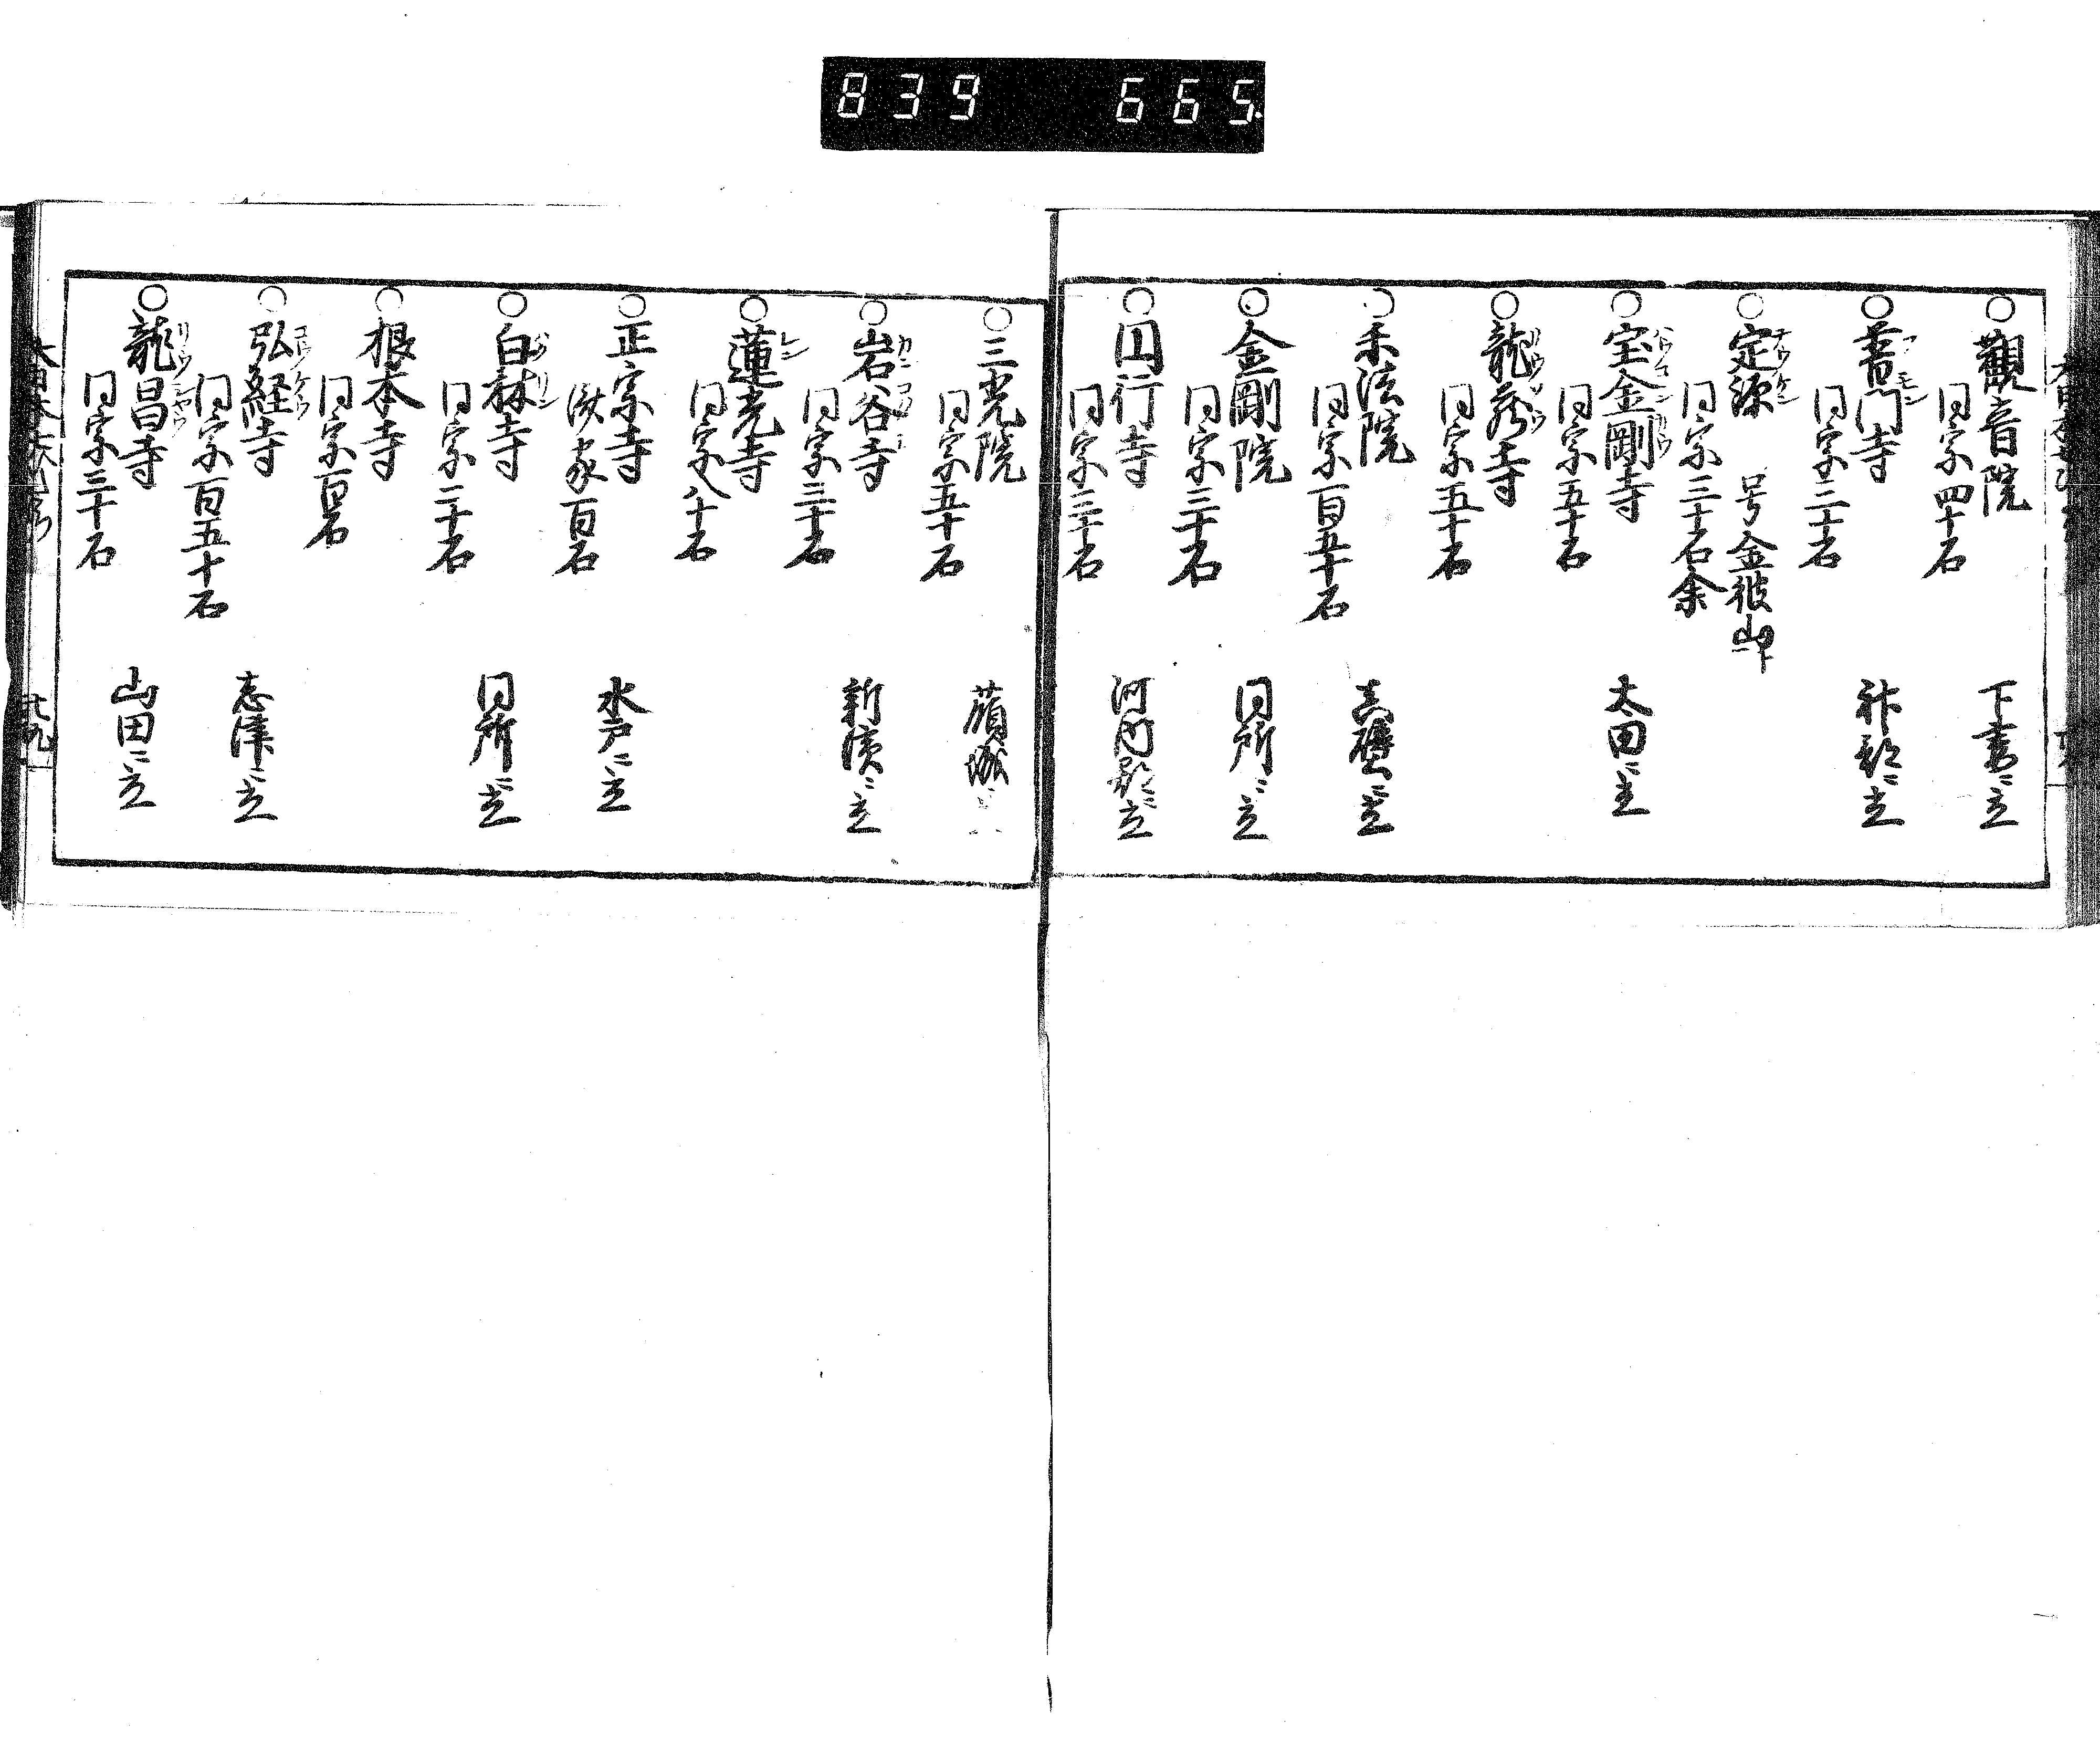 839 665
○觀音院
同宗四十石
下妻ニ立
○普門寺
同宗二十石
神郡ニ立
○定源
号金彼山
同宗三十石余
○宝金剛寺
同宗五十石
太田ニ立
○龍蔵寺
同宗五十石
○禾法院
同宗百五十石
真壁ニ立
○金剛院
同宗三十石
同所ニ立
○円行寺
同宗三十石
河内郡ニ立
○三光院
同宗五十石
○岩谷寺
同宗三十石
新濱ニ立
○蓮光寺
同宗八十石
○正宗寺
済家百石
水戸ニ立
○白林寺
同宗二十石
同所ニ立
○根本寺
同宗百石
○弘経寺
同宗百五十石
志津ニ立
○龍昌寺
同宗三十石
山田ニ立